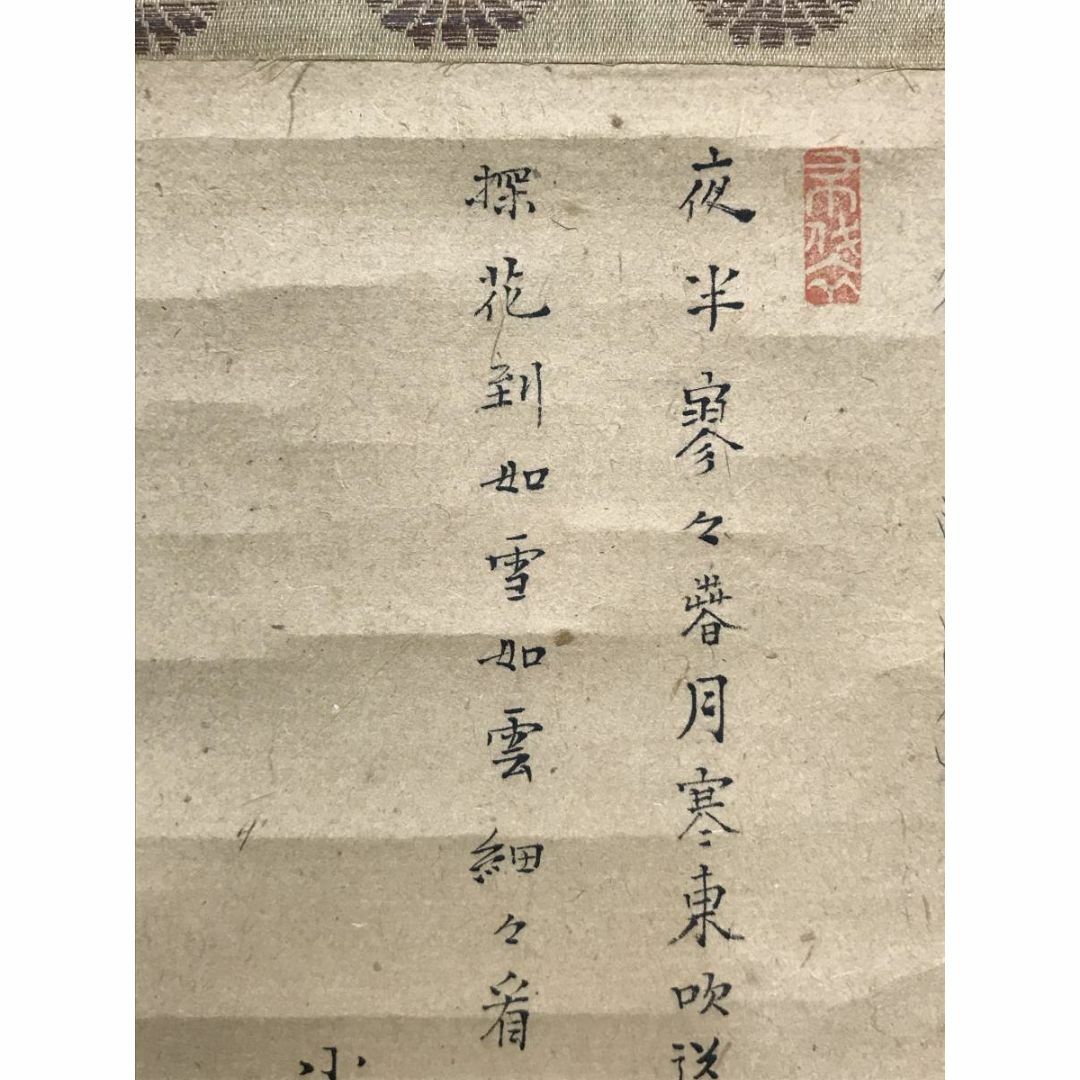 夜半寥々暮月寒東吹送
探花到如雪如雲細々看
小